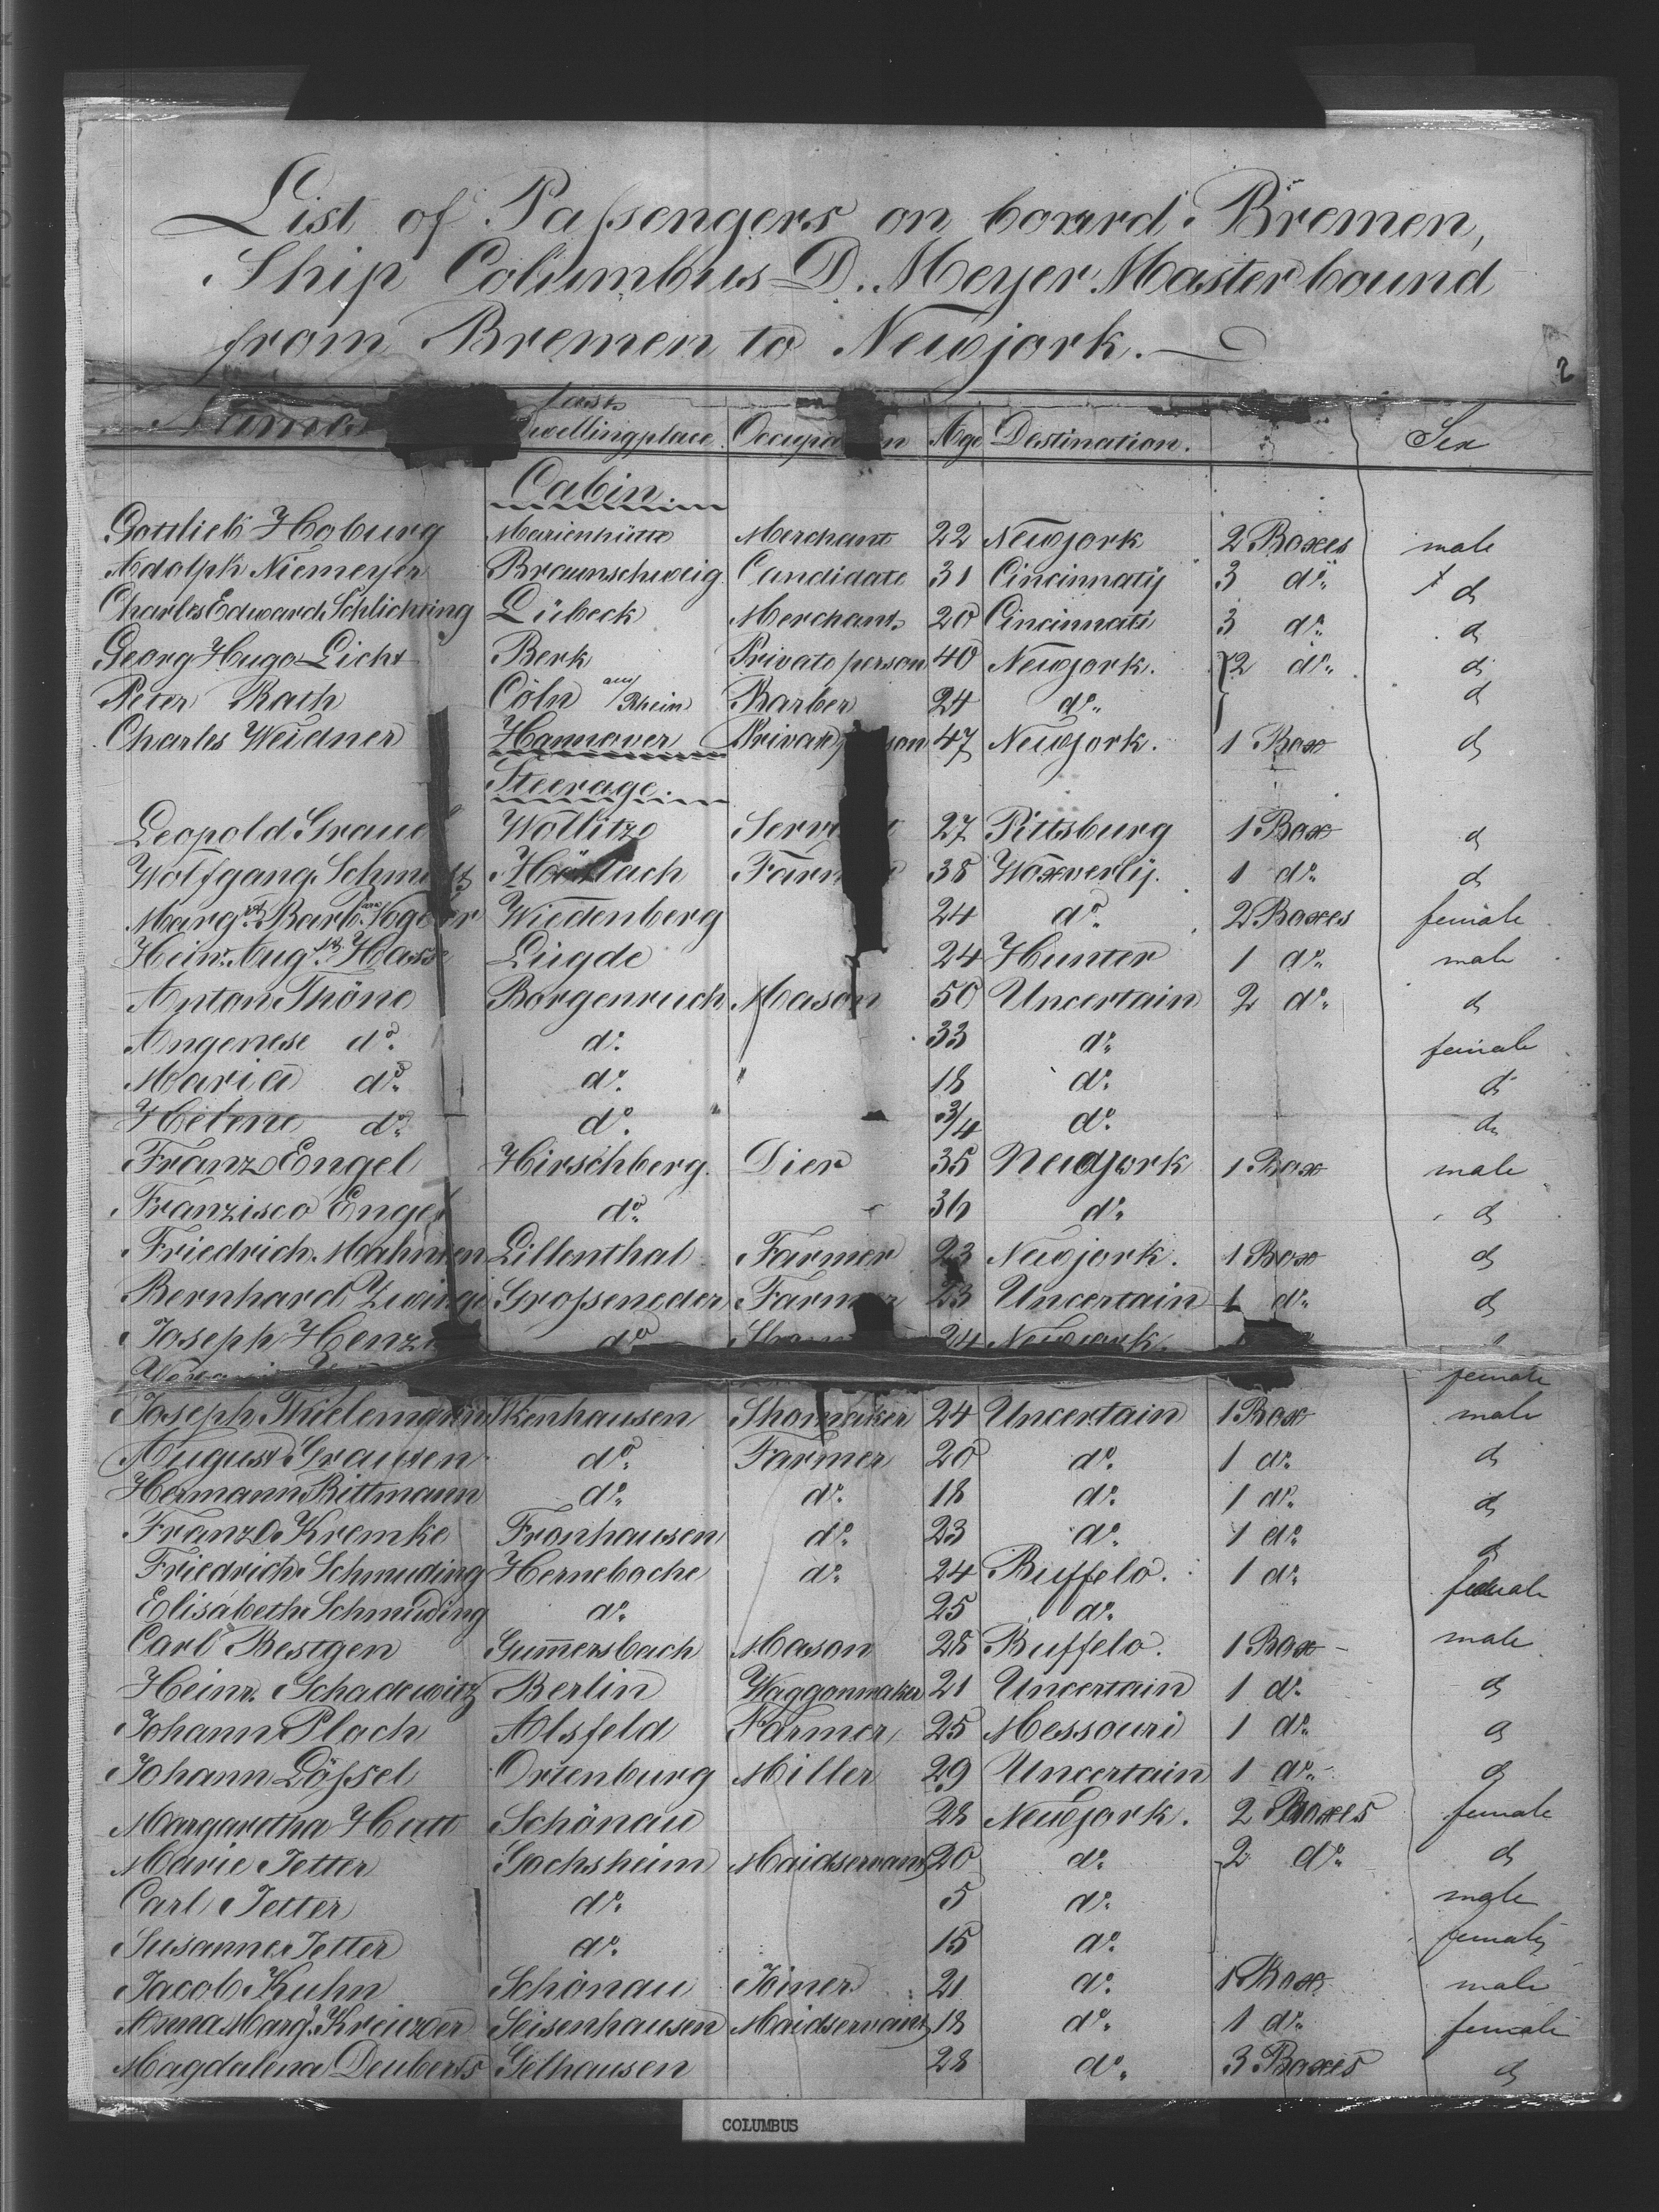 List of Passengers on board Bremen,
Ship Columbus D. Meyer Master bound
from Bremen to Newjork.
2
Names last Dwellingplace. Occupation Age Destination. Sex
Cabin
Gottlieb Hoburg Marienhütte Merchant 22 Newjork 2 Boxes male
Adolph Niemeyer Braunschweig Candidate 31 Cincinnatij 3 do. d
Charles Edward Schlichting Lübeck Merchant 20 Cincinnati 3 do. d
Georg Hugo Licht Berk Privato person 40 Newjork. 2 do. d
Peter Rath Cöln am Rhein Barber 24 do. d
Charles Weidner Hannover Privat person 47 Newjork. 1 Box d
Steerage.
Leopold Graue Wollitzo Servant 27 Pittsburg 1 Box d
Wolfgang Schmidt 38 Waxverlij. 1 do. d
Marg. Barb. Wiedenberg 24 do. 2 Boxes female
Heinr. Aug. Hasse Lügde 24 Hunter 1 do. male
Anton Thöne Borgenreich Mason 50 Uncertain 2 do. d
Angenese do. do. 33 do. female
Maria do. do. " 18 do. d
Helene do. do. 3/4 do. do
Franz Engel Hirschberg. Dier 35 Newjork 1 Box male
Franzisco Engel do. 36 do. d
Friedrich Mahnken Lillenthal Farmer 23 Newjork. 1 Box d
Bernhard Grosseneder Farmer 23 Uncertain 1 do. d
Joseph do 24 Newjork.
female
Joseph Thielemann Ikenhausen Shomaker 24 Uncertain 1 Box male
August Grauten do. Farmer 20 do. 1 do. d
Hermann Rittmann do. do. 18 do. 1 do. d
Franz Kremke Fronhausen do. 23 do. 1 do. d
Friedrich Schmuding Hernebache do. 24 Buffelo. 1 do.
Elisabeth Schmuding do. 25 do. female
Carl Bestgen Gummersbach Mason 28 Buffelo. 1 Box male
Heinr. Schadewitz Berlin Waggonmaker 21 Uncertain 1 do. d
Johann Ploch Alsfeld Farmer 25 Messouri 1 do. d
Johann Lössel Ortenburg Miller 29 Uncertain 1 do. d
Margaretha Hutt Schönau 28 Newjork. 2 Boxes female
Marie Tetter Gochsheim Maidservant 20 do. 2 do. d
Carl Tetter do. 5 do. male
Susanne Tetter do. 15 do. female
Jacob Kuhn Schönau Joiner 21 do. 1 Box male
Anna Marg. Kreuzer Seisenhausen Maidservant 18 do. 1 do. female
Magdalena Deuberts Gelhausen 28 do. 3 Boxes d
COLUMBUS